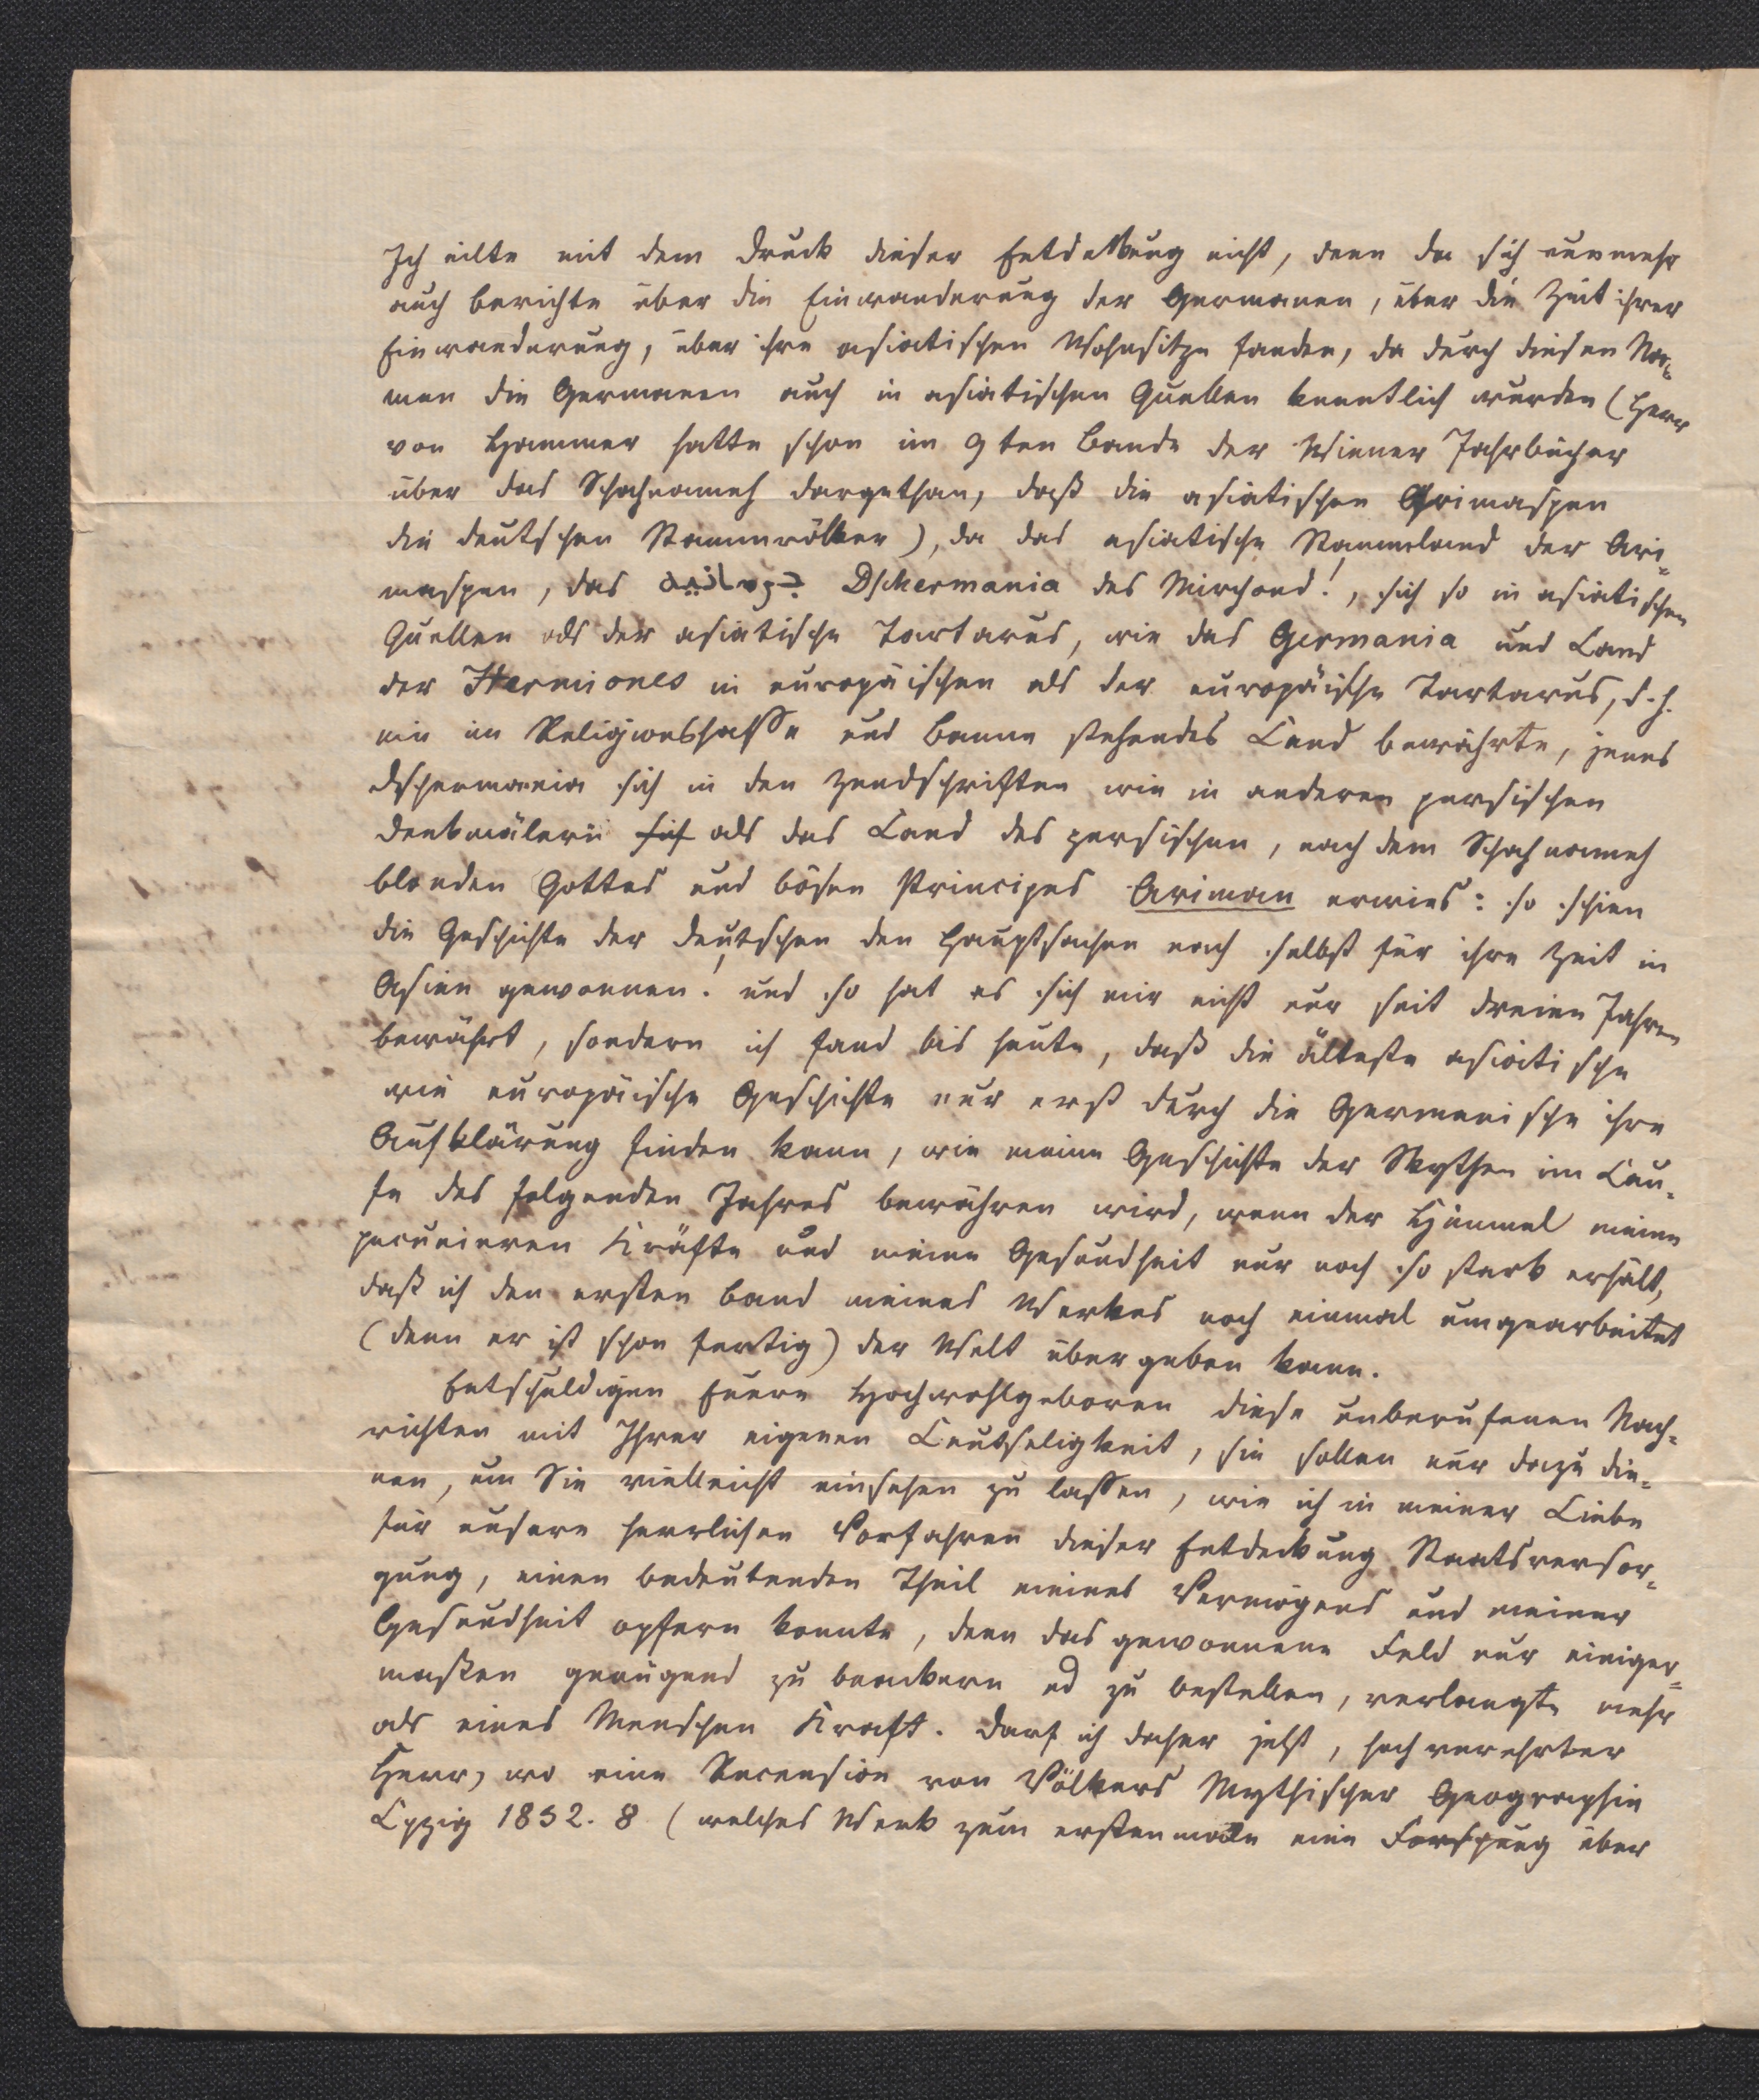 Ich eilte mit dem Druck dieser Entdekkung nicht, denn da sich nunmehr
auch Berichte über die Einwanderung der Germanen, über die Zeit ihrer
Einwanderung, über ihre asiatischen Wohnsitze fanden, da durch diesen Na-
men die Germanen auch in asiatischen Quellen kenntlich wurden (Herr
von Hammer hatte schon im 9ten Bande der Wiener Jahrbücher
über das Schahnameh dargethan, daß die asiatischen Arimaspen
die deutschen Stammvölker), da das asiatische Stammland der Ari-
maspen, das جرمانيه Dschermania des Mirchond!, sich so in asiatischen
Quellen als der asiatische Tartarus, wie das Germania und Land
der Hermiones in europäischen als der europäische Tartarus, d. h.
ein im Religionshasse und Banne stehendes Land bewährte, jenes
Dschermania sich in den Zendschriften wie in anderen persischen
Denkmälern sich als das Land des persischen, nach dem Schahnameh
blonden Gottes und bösen Principes Ariman erwies: so schien
die Geschichte der Deutschen den Hauptsachen nach selbst für ihre Zeit in
Asien gewonnen! und so hat es sich mir nicht nur seit dreien Jahren
bewährt, sondern ich fand bis heute, daß die älteste asiatische
wie europäische Geschichte nur erst durch die Germanische ihre
Aufklärung finden kann, wie meine Geschichte der Skythen im Lau-
fe des folgenden Jahres bewähren wird, wenn der Himmel meine
pecunieren Kräfte und meine Gesundheit nur noch so stark erhält,
daß ich den ersten Band meines Werkes noch einmal umgearbeitet
(denn er ist schon fertig) der Welt übergeben kann.
Entschuldigen Euere Hochwohlgeboren diese unberufenen Nach-
richten mit Ihrer eigenen Leutseligkeit, sie sollen nur dazu die-
nen, um Sie vielleicht einsehen zu lassen, wie ich in meiner Liebe
für unsere herrlichen Vorfahren dieser Entdeckung Staatsversor-
gung, einen bedeutenden Theil meines Vermögens und meiner
Gesundheit opfern konnte, denn das gewonnene Feld nur einiger-
maßen genügend zu beackern ud zu bestellen, verlangte mehr
als eines Menschen Kraft. Darf ich daher jetzt, hochverehrter
Herr, wo eine Recension von Völkers Mythischer Geographie
Lpzig 1832. 8 (welches Werk zum erstenmale eine Forschung über